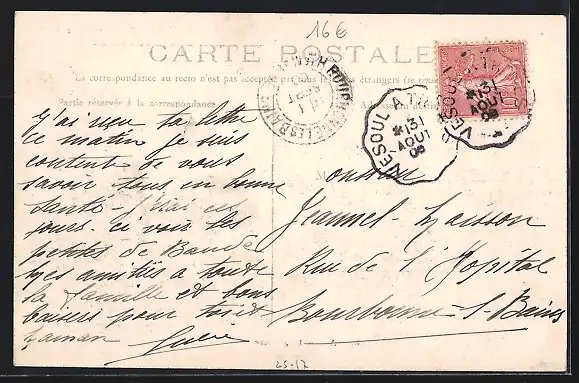 16€
CARTE POSTALE
La correspondance au recto n'est pas acceptée par tous les pays étrangers (se rense
Partie réservée à la correspondance
Adresse du
VESOUL
31
AOUT
VESOUL
31
AOUT
BOURBONNE-LES-BAINS
Hte MARNE
1
SEPT
10
J'ai reçu ta lettre
ce matin je suis
contente de vous
savoir tous en bonne
santé j'irai ces
jours. ci voir les
petits de Baude
mes amitiés a toute
la famille et bons
baisers pour toi et
maman
Monsieur
Jeannel-Maison
Rue de l'Hopital
Bourbonne-l-Bains
25-17